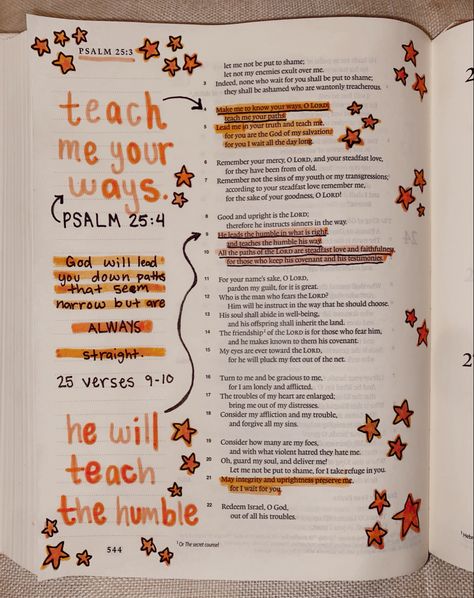 PSALM 25:3
teach
me your
ways.
PSALM 25:4
God will lead
you down paths
that seem
narrow but are
ALWAYS
straight.
25 verses 9-10
he will
teach
the humble
544
let me not be put to shame;
let not my enemies exult over me.
3 Indeed, none who wait for you shall be put to shame;
they shall be ashamed who are wantonly treacherous.
4 Make me to know your ways, O LORD;
teach me your paths.
5 Lead me in your truth and teach me,
for you are the God of my salvation;
for you I wait all the day long.
6 Remember your mercy, O LORD, and your steadfast love,
for they have been from of old.
7 Remember not the sins of my youth or my transgressions;
according to your steadfast love remember me,
for the sake of your goodness, O LORD!
8 Good and upright is the LORD;
therefore he instructs sinners in the way.
9 He leads the humble in what is right,
and teaches the humble his way.
10 All the paths of the LORD are steadfast love and faithfulness,
for those who keep his covenant and his testimonies.
11 For your name's sake, O LORD,
pardon my guilt, for it is great.
12 Who is the man who fears the LORD?
Him will he instruct in the way that he should choose.
13 His soul shall abide in well-being,
and his offspring shall inherit the land.
14 The friendship¹ of the LORD is for those who fear him,
and he makes known to them his covenant.
15 My eyes are ever toward the LORD,
for he will pluck my feet out of the net.
16 Turn to me and be gracious to me,
for I am lonely and afflicted.
17 The troubles of my heart are enlarged;
bring me out of my distresses.
18 Consider my affliction and my trouble,
and forgive all my sins.
19 Consider how many are my foes,
and with what violent hatred they hate me.
20 Oh, guard my soul, and deliver me!
Let me not be put to shame, for I take refuge in you.
21 May integrity and uprightness preserve me,
for I wait for you.
22 Redeem Israel, O God,
out of all his troubles.
¹ Or The secret counsel